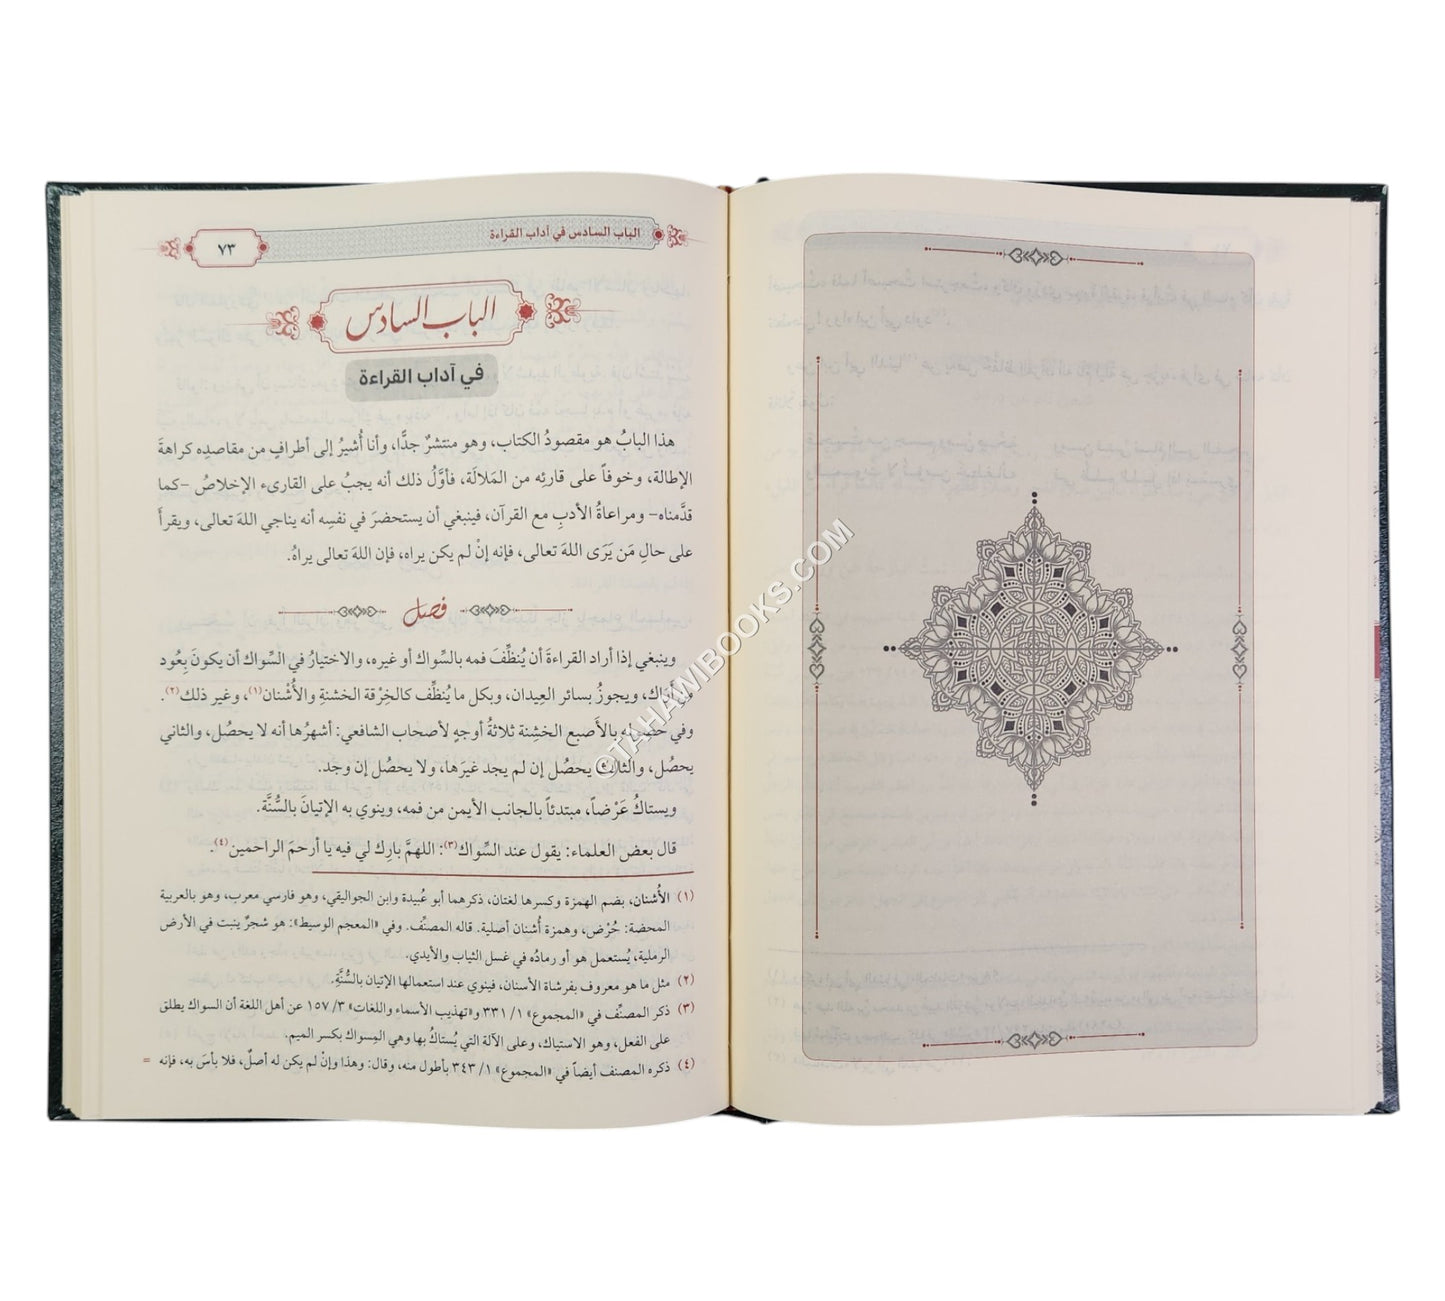 الباب السادس في آداب القراءة
٧٣
الباب السادس
في آداب القراءة
هذا البابُ هو مقصودُ الكتاب، وهو منتشرٌ جدًّا، وأنا أُشيرُ إلى أطرافٍ من مقاصدِه كراهةَ
الإطالة، وخوفاً على قارئه من المَلالَة، فأوَّلُ ذلك أنه يجبُ على القارىء الإخلاصُ -كما
قدَّمناه- ومراعاةُ الأدبِ مع القرآن، فينبغي أن يستحضرَ في نفسِه أنه يناجي اللهَ تعالى، ويقرأَ
على حالِ مَن يَرَى اللهَ تعالى، فإنه إنْ لم يكن يراه، فإن اللهَ تعالى يراهُ.
فصل
وينبغي إذا أراد القراءةَ أن يُنظِّفَ فمه بالسِّواك أو غيره، والاختيارُ في السِّواك أن يكونَ بِعُود
من أَرَاك، ويجوزُ بسائر العِيدان، وبكل ما يُنظِّف كالخِرْقة الخشنةِ والأُشْنان(١)، وغير ذلك(٢).
وفي حصوله بالأَصبع الخشِنة ثلاثةُ أوجهٍ لأصحاب الشافعي: أشهرُها أنه لا يحصُل، والثاني
يحصُل، والثالث يحصُل إن لم يجد غيرَها، ولا يحصُل إن وجَد.
ويستاكُ عَرْضاً، مبتدئاً بالجانب الأيمن من فمه، وينوي به الإتيانَ بالسُّنَّة.
قال بعض العلماء: يقول عند السِّواك(٣): اللهمَّ بارِك لي فيه يا أرحمَ الراحمين(٤).
(١) الأُشنان، بضم الهمزة وكسرها لغتان، ذكرهما أبو عُبيدة وابن الجواليقي، وهو فارسي معرب، وهو بالعربية
المحضة: حُرْض، وهمزة أُشنان أصلية. قاله المصنِّف. وفي «المعجم الوسيط»: هو شجرٌ ينبت في الأرض
الرملية، يُستعمل هو أو رمادُه في غسل الثياب والأيدي.
(٢) مثل ما هو معروف بفرشاة الأسنان، فينوي عند استعمالها الإتيان بالسُّنَّةِ.
(٣) ذكر المصنِّف في «المجموع» ١/ ٣٣١ و«تهذيب الأسماء واللغات» ٣/ ١٥٧ عن أهل اللغة أن السواك يطلق
على الفعل، وهو الاستياك، وعلى الآلة التي يُستاكُ بها وهي المِسواك بكسر الميم.
(٤) ذكره المصنف أيضاً في «المجموع» ١/ ٣٤٣ بأطول منه، وقال: وهذا وإنْ لم يكن له أصلٌ، فلا بأسَ به، فإنه =
©TAHAWIBOOKS.COM